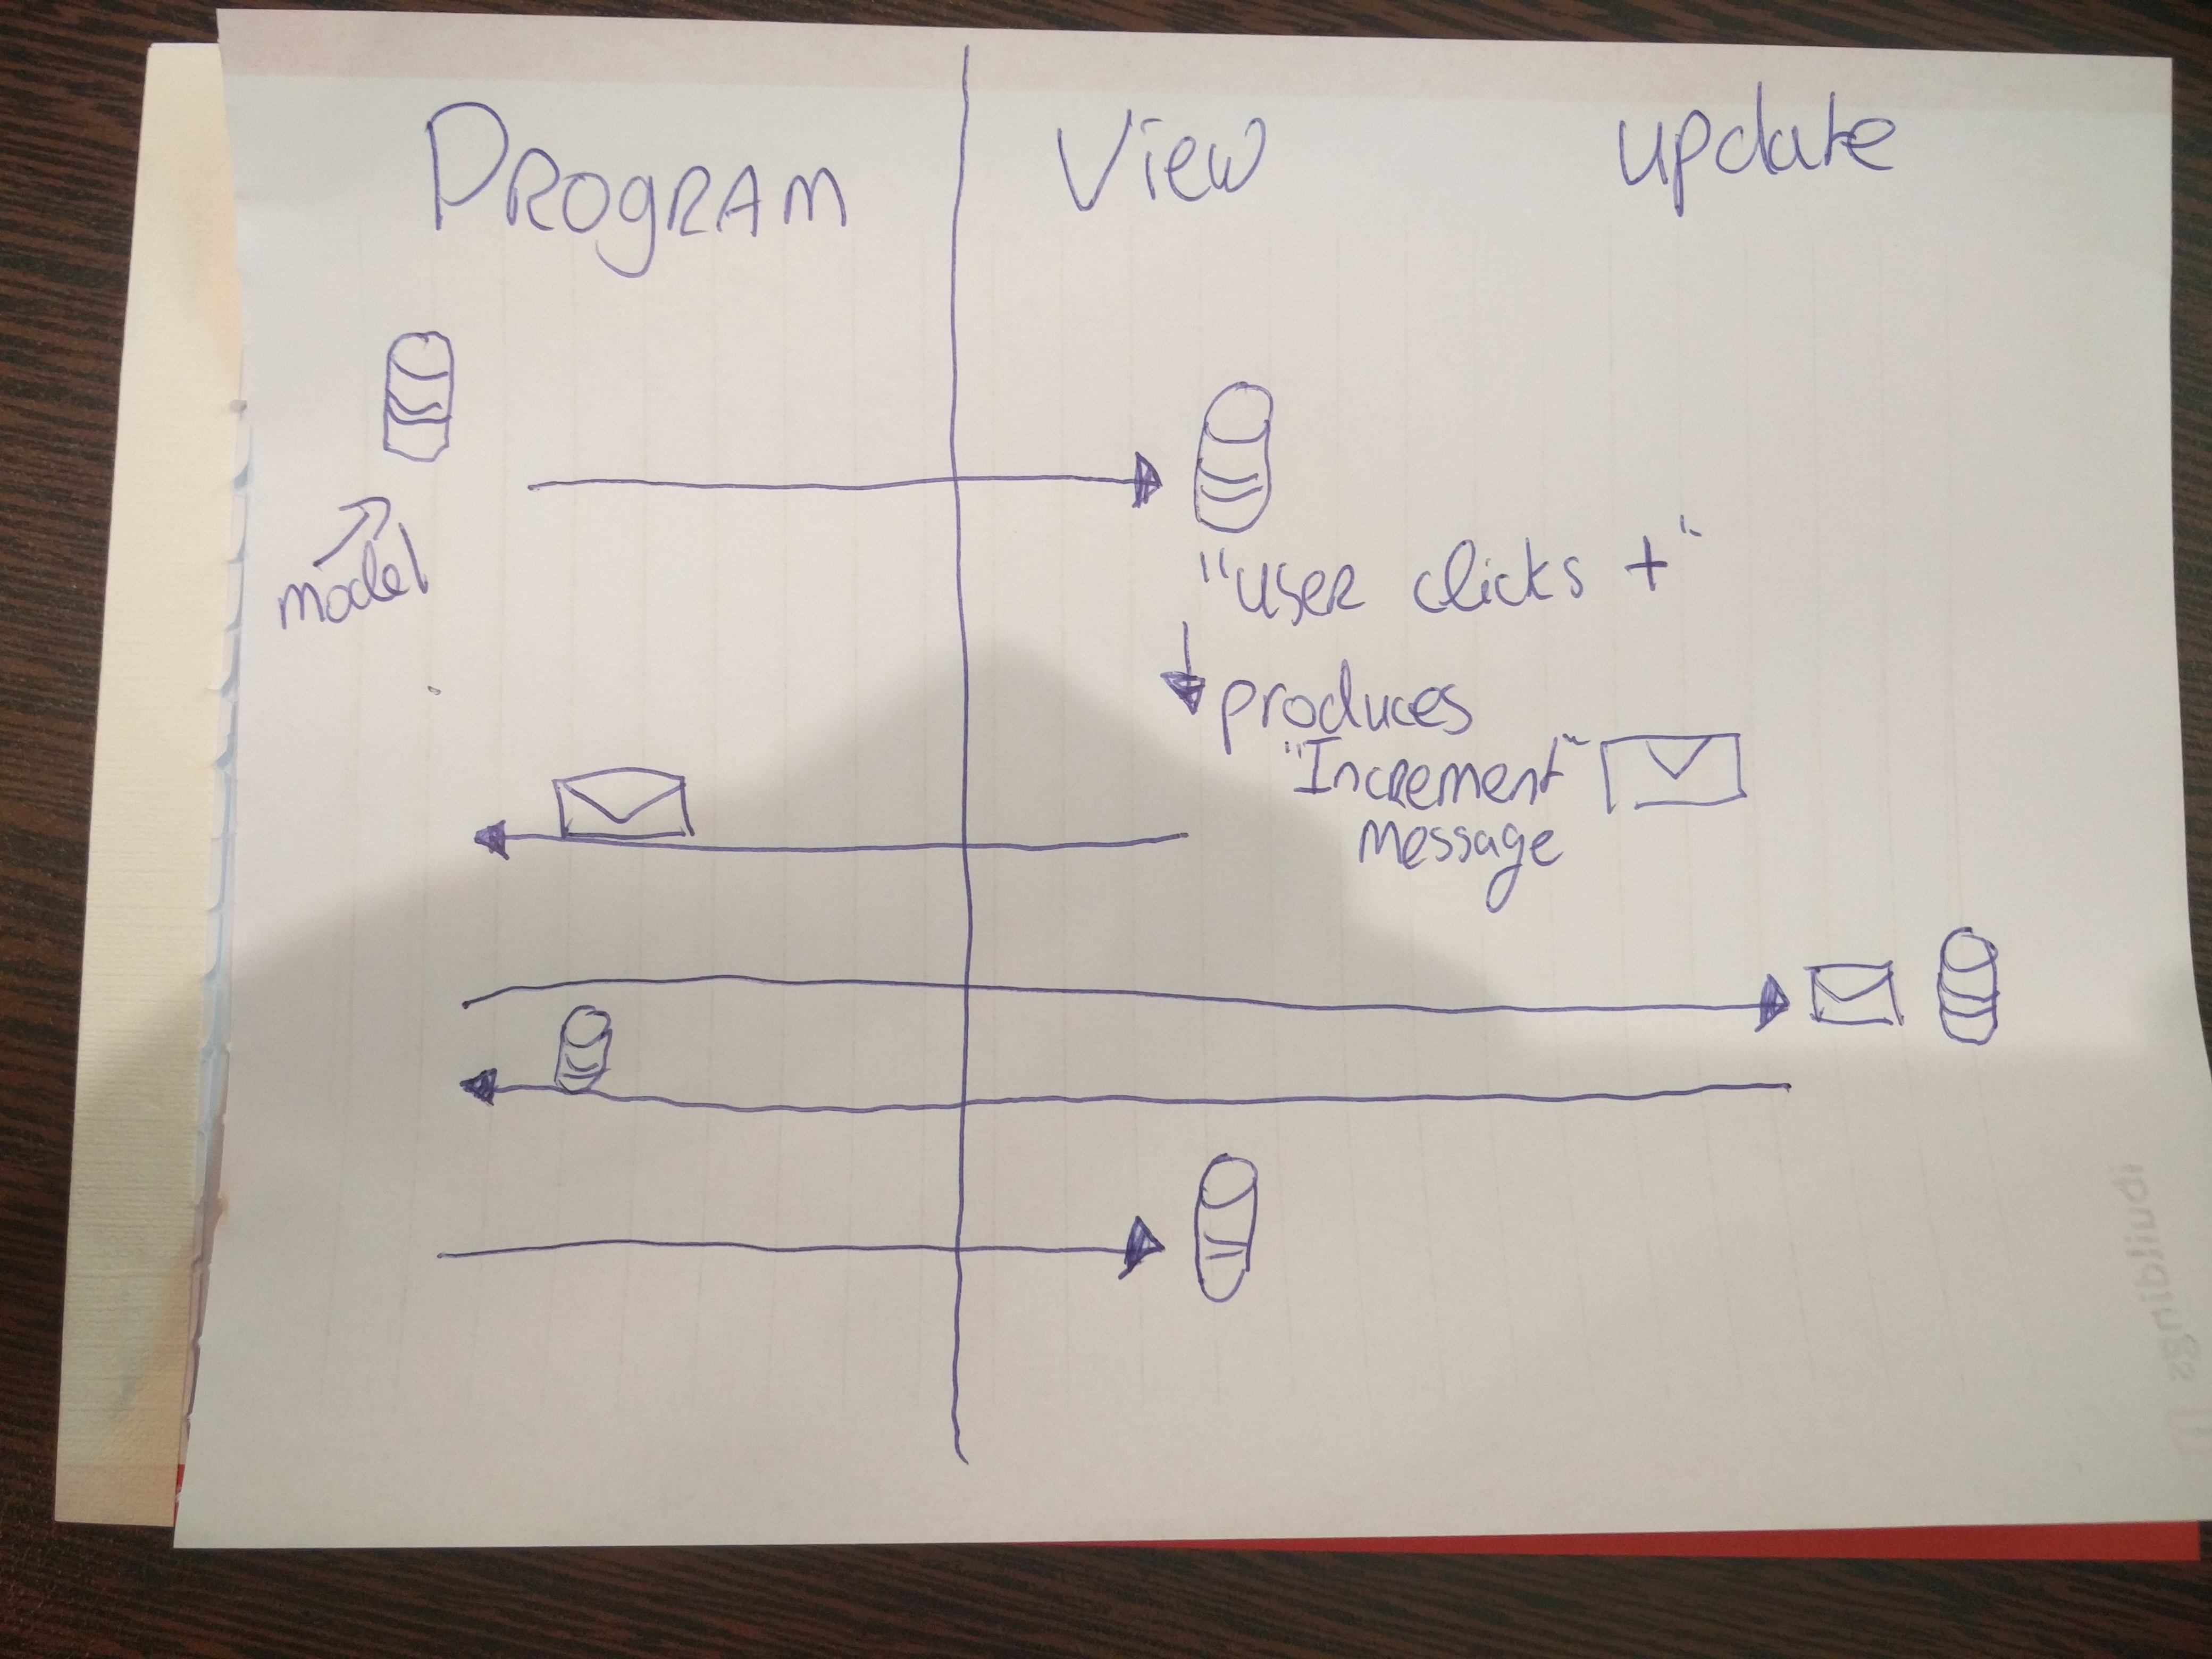 PROGRAM View update
model
"user clicks +"
produces
"Increment"
Message